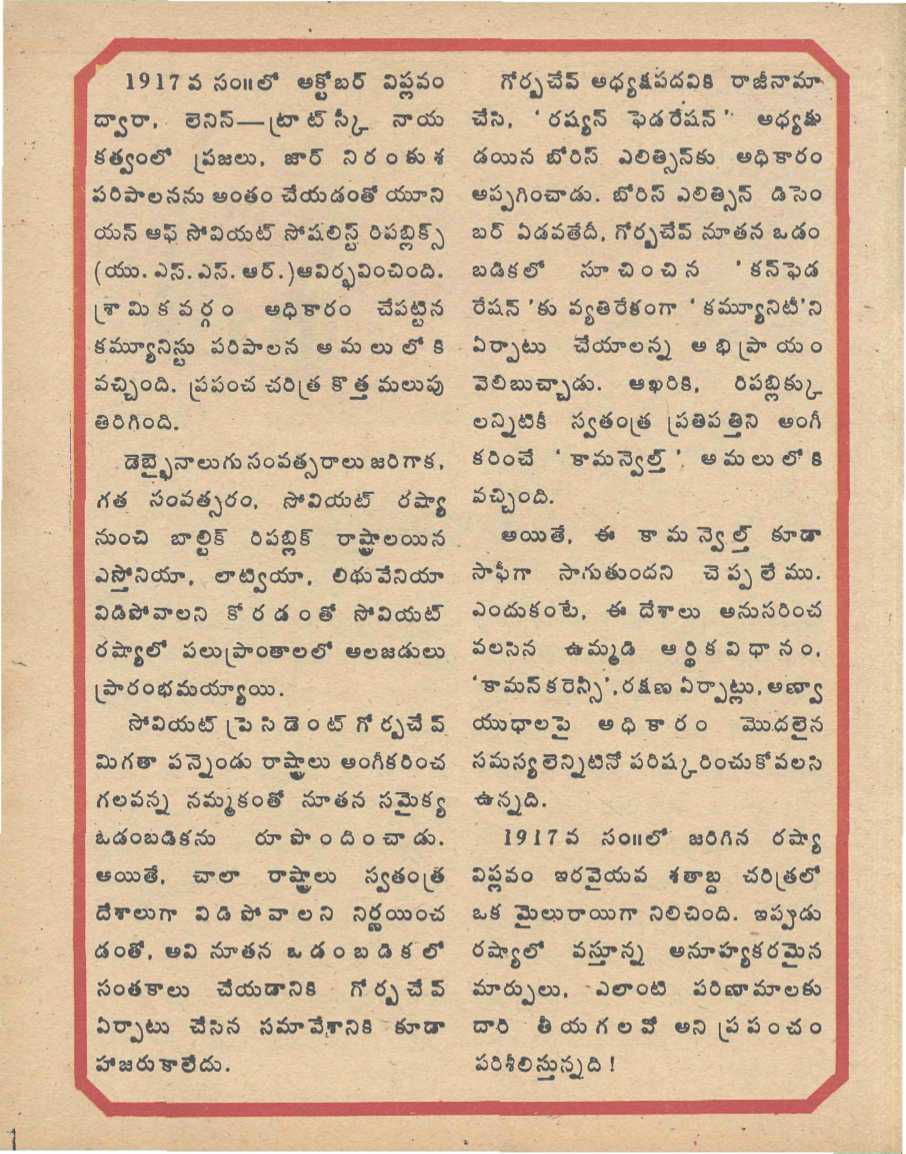 1917 వ సం॥లో అక్టోబర్ విప్లవం
ద్వారా, లెనిన్—ట్రాట్‌స్కీ నాయ
కత్వంలో ప్రజలు, జార్ నిరంకుశ
పరిపాలనను అంతం చేయడంతో యూని
యన్ ఆఫ్ సోవియట్ సోషలిస్ట్ రిపబ్లిక్స్
(యు. ఎస్. ఎస్. ఆర్.)ఆవిర్భవించింది.
శ్రామికవర్గం అధికారం చేపట్టిన
కమ్యూనిస్టు పరిపాలన అమలులోకి
వచ్చింది. ప్రపంచ చరిత్ర కొత్త మలుపు
తిరిగింది.
డెబ్భైనాలుగు సంవత్సరాలు జరిగాక,
గత సంవత్సరం, సోవియట్ రష్యా
నుంచి బాల్టిక్ రిపబ్లిక్ రాష్ట్రాలయిన
ఎస్తోనియా, లాట్వియా, లిథువేనియా
విడిపోవాలని కోరడంతో సోవియట్
రష్యాలో పలుప్రాంతాలలో అలజడులు
ప్రారంభమయ్యాయి.
సోవియట్ ప్రెసిడెంట్ గోర్బచేవ్
మిగతా పన్నెండు రాష్ట్రాలు అంగీకరించ
గలవన్న నమ్మకంతో నూతన సమైక్య
ఒడంబడికను రూపొందించాడు.
అయితే, చాలా రాష్ట్రాలు స్వతంత్ర
దేశాలుగా విడిపోవాలని నిర్ణయించ
డంతో, అవి నూతన ఒడంబడికలో
సంతకాలు చేయడానికి గోర్బచేవ్
ఏర్పాటు చేసిన సమావేశానికి కూడా
హాజరుకాలేదు.
గోర్బచేవ్ అధ్యక్షపదవికి రాజీనామా
చేసి, 'రష్యన్ ఫెడరేషన్' అధ్యక్షు
డయిన బోరిస్ ఎలిత్సిన్‌కు అధికారం
అప్పగించాడు. బోరిస్ ఎలిత్సిన్ డిసెం
బర్ ఏడవతేదీ, గోర్బచేవ్ నూతన ఒడం
బడికలో సూచించిన 'కన్‌ఫెడ
రేషన్'కు వ్యతిరేకంగా 'కమ్యూనిటీ'ని
ఏర్పాటు చేయాలన్న అభిప్రాయం
వెలిబుచ్చాడు. ఆఖరికి, రిపబ్లిక్కు
లన్నిటికీ స్వతంత్ర ప్రతిపత్తిని అంగీ
కరించే 'కామన్వెల్త్' అమలులోకి
వచ్చింది.
అయితే, ఈ కామన్వెల్త్ కూడా
సాఫీగా సాగుతుందని చెప్పలేము.
ఎందుకంటే, ఈ దేశాలు అనుసరించ
వలసిన ఉమ్మడి ఆర్థికవిధానం,
'కామన్ కరెన్సీ', రక్షణ ఏర్పాట్లు, అణ్వా
యుధాలపై అధికారం మొదలైన
సమస్యలెన్నిటినో పరిష్కరించుకోవలసి
ఉన్నది.
1917 వ సం॥లో జరిగిన రష్యా
విప్లవం ఇరవైయవ శతాబ్ద చరిత్రలో
ఒక మైలురాయిగా నిలిచింది. ఇప్పుడు
రష్యాలో వస్తూన్న అనూహ్యకరమైన
మార్పులు, ఎలాంటి పరిణామాలకు
దారి తీయగలవో అని ప్రపంచం
పరిశీలిస్తున్నది!